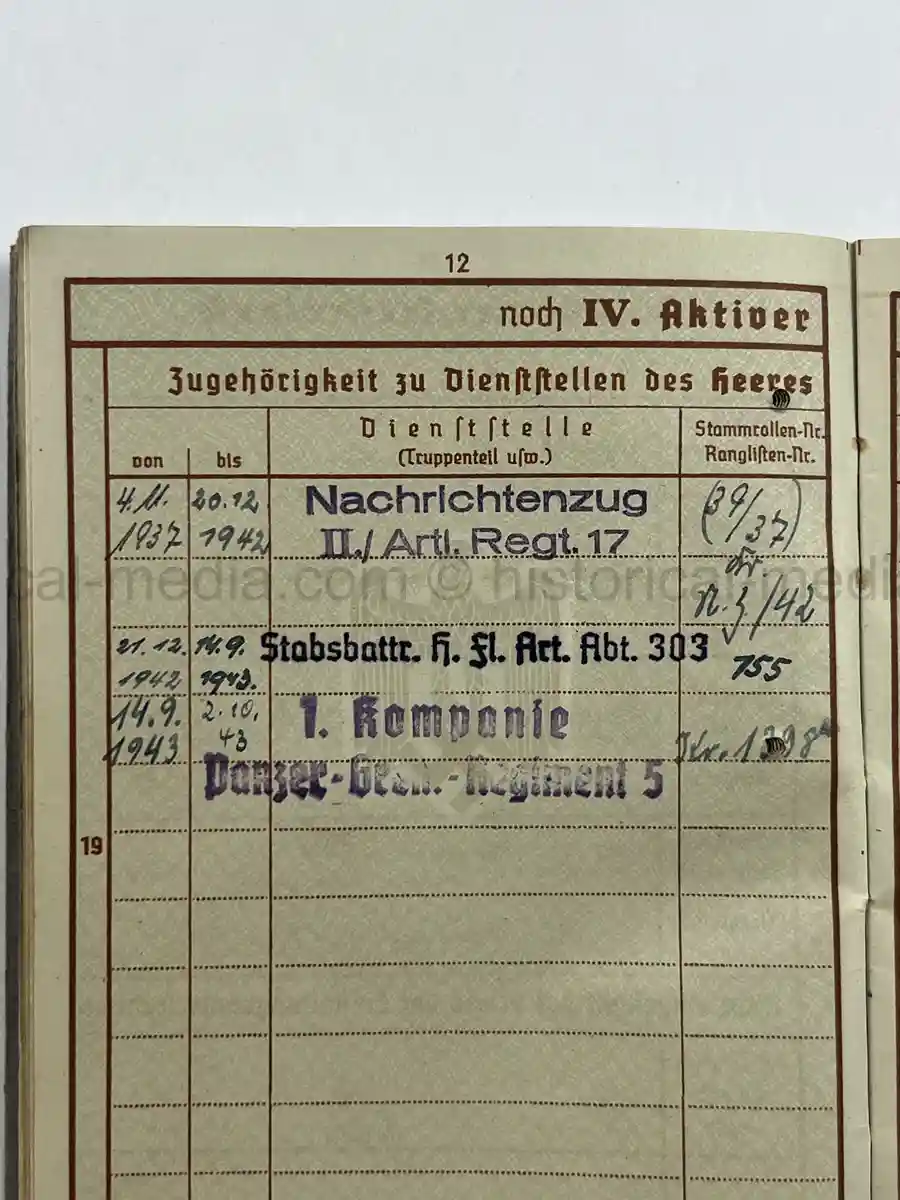 12
noch IV. Aktiver
Zugehörigkeit zu Dienststellen des Heeres
von bis
Dienststelle
(Truppenteil usw.)
Stammrollen-Nr.
Ranglisten-Nr.
4.11. 20.12. Nachrichtenzug (39/37)
1937 1942 II./ Artl. Regt. 17
cal-media.com © historical-medi
N.Z/42
21.12. 14.9. Stabsbattr. H. Fl. Art. Abt. 303 155
1942 1943.
14.9. 2.10. 1. Kompanie
1943 43
Panzer-Gren.-Regiment 5
19